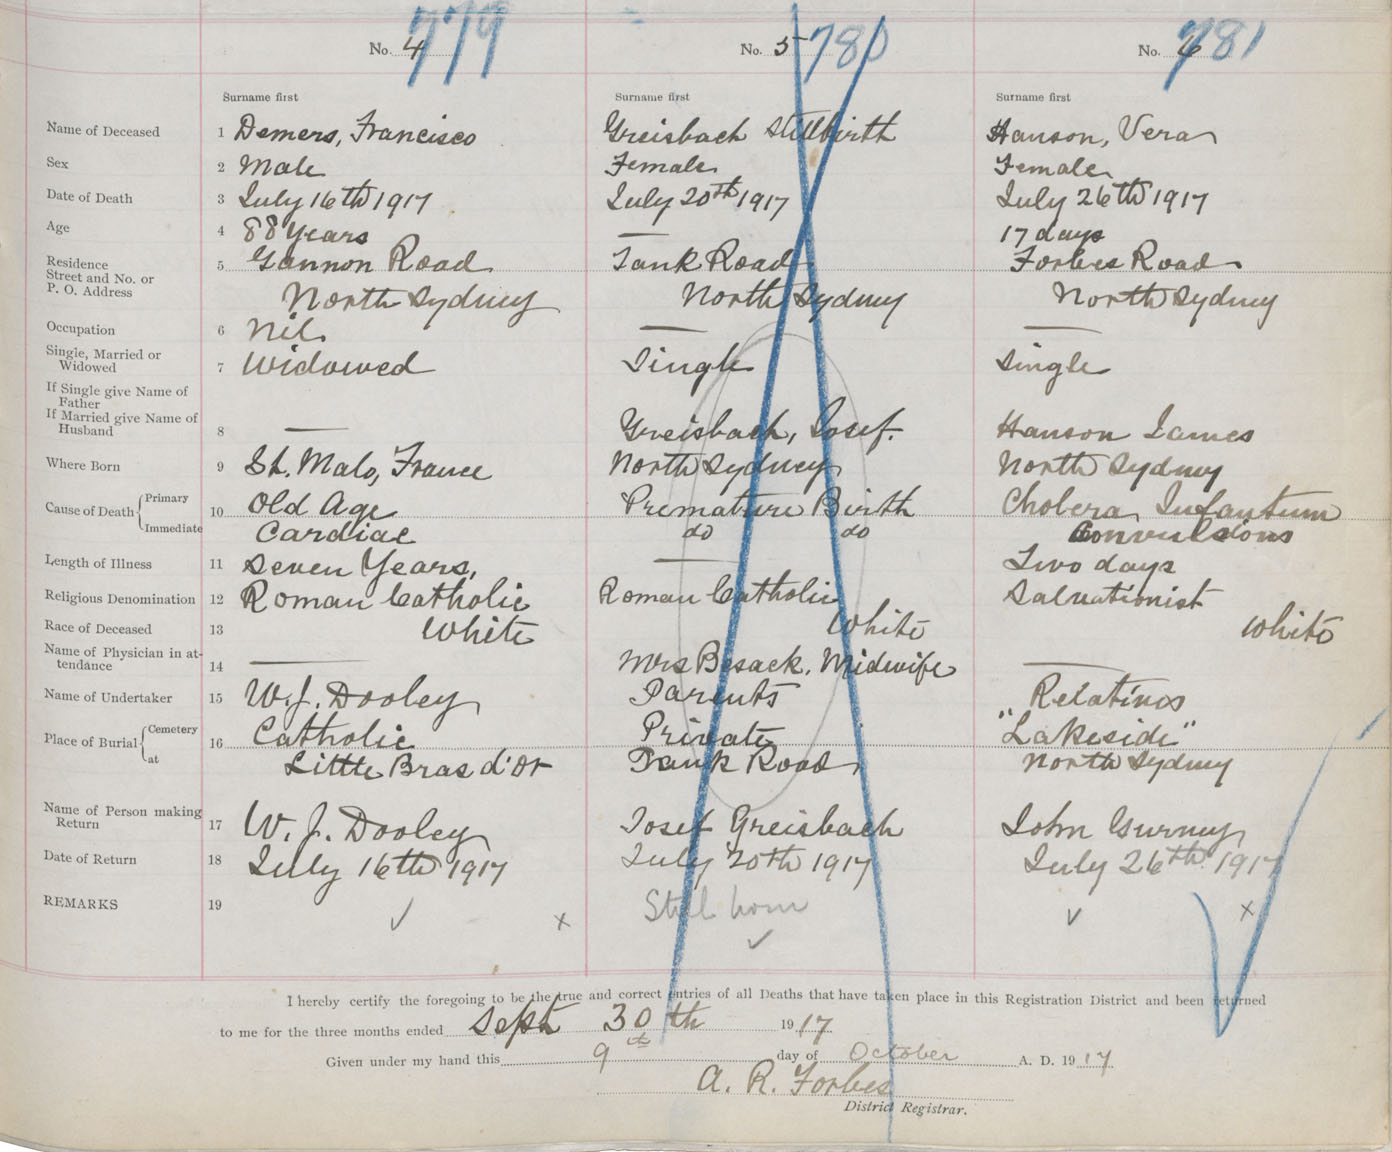 No. 4 779 No. 5 780 No. 6 781
Surname first Surname first Surname first
Name of Deceased 1 Demers, Francisco Greisbach Stillbirth Hanson, Vera
Sex 2 Male Female Female
Date of Death 3 July 16th 1917 July 20th 1917 July 26th 1917
Age 4 88 Years — 17 days
Residence 5 Gannon Road Tank Road Forbes Road
Street and No. or
P. O. Address North Sydney North Sydney North Sydney
Occupation 6 Nil — —
Single, Married or
Widowed 7 Widowed Single Single
If Single give Name of
Father
If Married give Name of
Husband 8 — Greisbach, Josef. Hanson James
Where Born 9 St. Malo, France North Sydney North Sydney
Cause of Death { Primary 10 Old Age Premature Birth Cholera Infantum
Immediate Cardiac do do Convulsions
Length of Illness 11 Seven Years, — Two days
Religious Denomination 12 Roman Catholic Roman Catholic Salvationist
Race of Deceased 13 White White White
Name of Physician in at-
tendance 14 — Mrs Besack, Midwife —
Name of Undertaker 15 W. J. Dooley Parents Relatives
Place of Burial { Cemetery 16 Catholic Private "Lakeside"
at Little Bras d'Or Tank Road North Sydney
Name of Person making
Return 17 W. J. Dooley Josef Greisbach John Gurney
Date of Return 18 July 16th 1917 July 20th 1917 July 26th 1917
REMARKS 19 ✓ x Still born ✓ ✓ x
I hereby certify the foregoing to be the true and correct entries of all Deaths that have taken place in this Registration District and been returned
to me for the three months ended Sept 30th 1917
Given under my hand this 9th day of October A. D. 1917
A. R. Forbes
District Registrar.